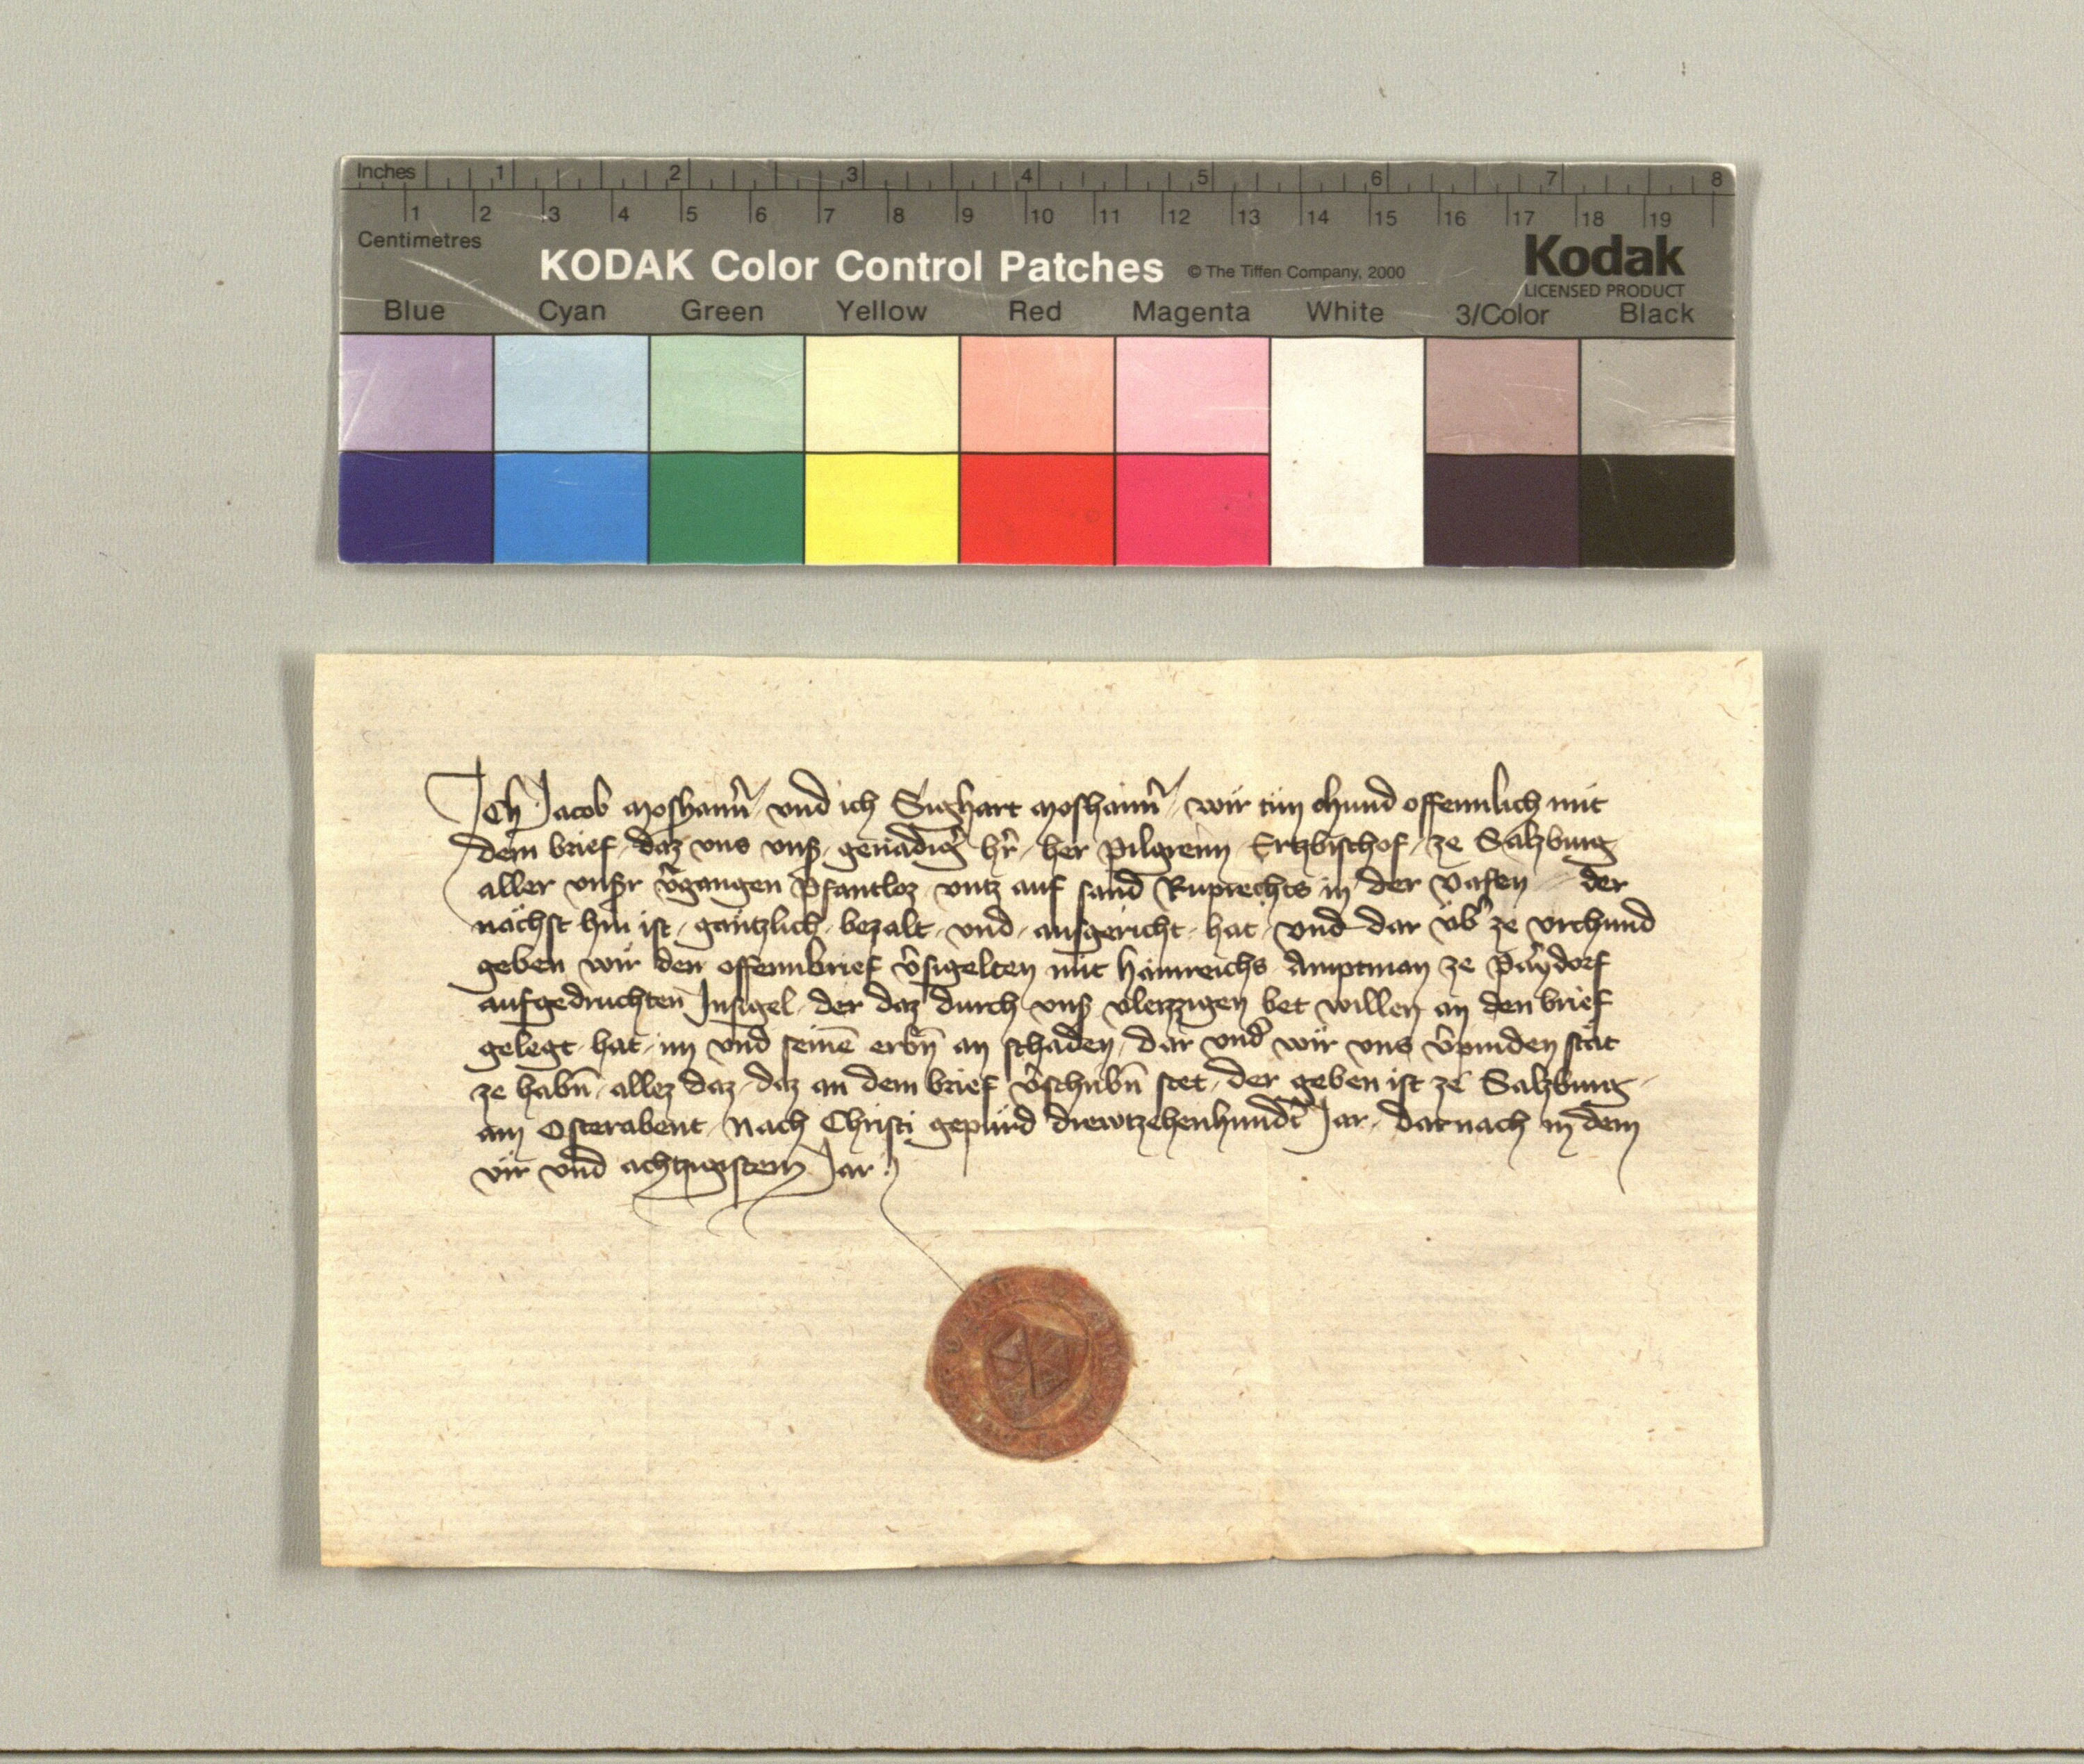 Inches 1 2 3 4 5 6 7 8
1 2 3 4 5 6 7 8 9 10 11 12 13 14 15 16 17 18 19
Centimetres
KODAK Color Control Patches © The Tiffen Company, 2000 Kodak
LICENSED PRODUCT
Blue Cyan Green Yellow Red Magenta White 3/Color Black
Ich Jacob moshaim̄ und ich Sighart moshaim̄ wir tün chund offennlich mit
dem brief daz uns uns genädiḡ hr̄ her Pilgreim Ertzbischof ze Salzburg
aller unsr v̄gangen Pfantloz untz auf sand Ruprechts in der Vasten der
nächst hin ist gäntzlich bezalt und ausgericht hat und dar üb̄ ze urchund
geben wir den offennbrief v̄sigelten mit hainreichs Amptman ze
aufgedruchten Insigel der daz durch uns vleizzigen bet willen an den brief
gelegt hat im und seinē erbn̄ an schaden dar und̄ wir uns v̄pinden stät
ze habn̄ allez daz daz an dem brief v̄schribn̄ stet der geben ist ze Salzburg
am Osterabent Nach Christi gepürd drewtzehenhundt̄ Jar darnach in dem
vir und achtzigistem Jar